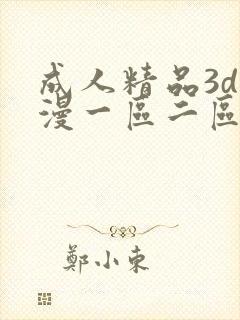 成人精品3d
漫一區二區
鄭小東